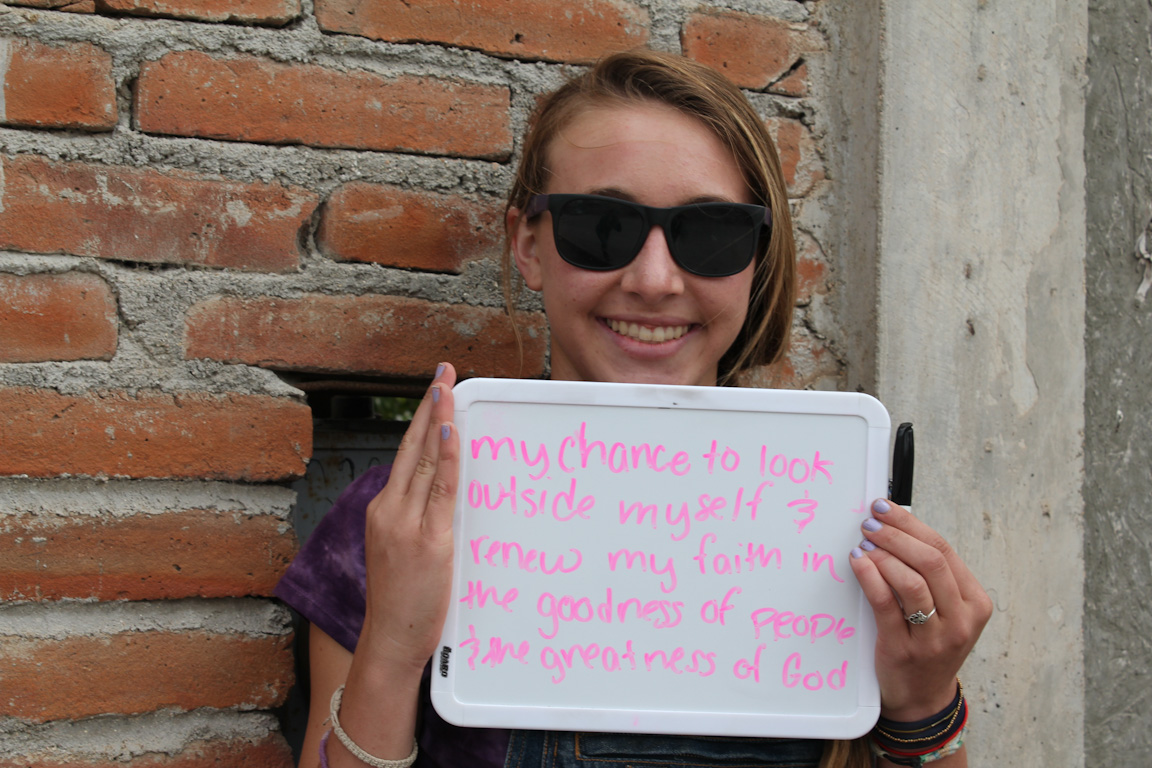 my chance to look
outside myself &
renew my faith in
the goodness of people
& the greatness of God
BOARD